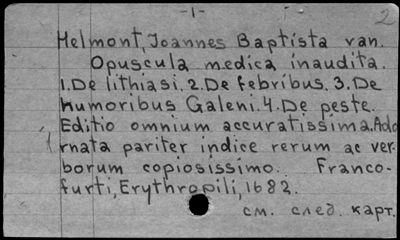 -1-
2
Helmont, Joannes Baptista van.
Opuscula medica inaudita.
1.De lithiasi. 2.De febribus. 3.De
humoribus Galeni. 4.De peste.
Editio omnium accuratissima. Ado
rnata pariter indice rerum ac ver-
borum copiosissimo. Franco-
furti, Erythropili, 1682.
см. след. карт.